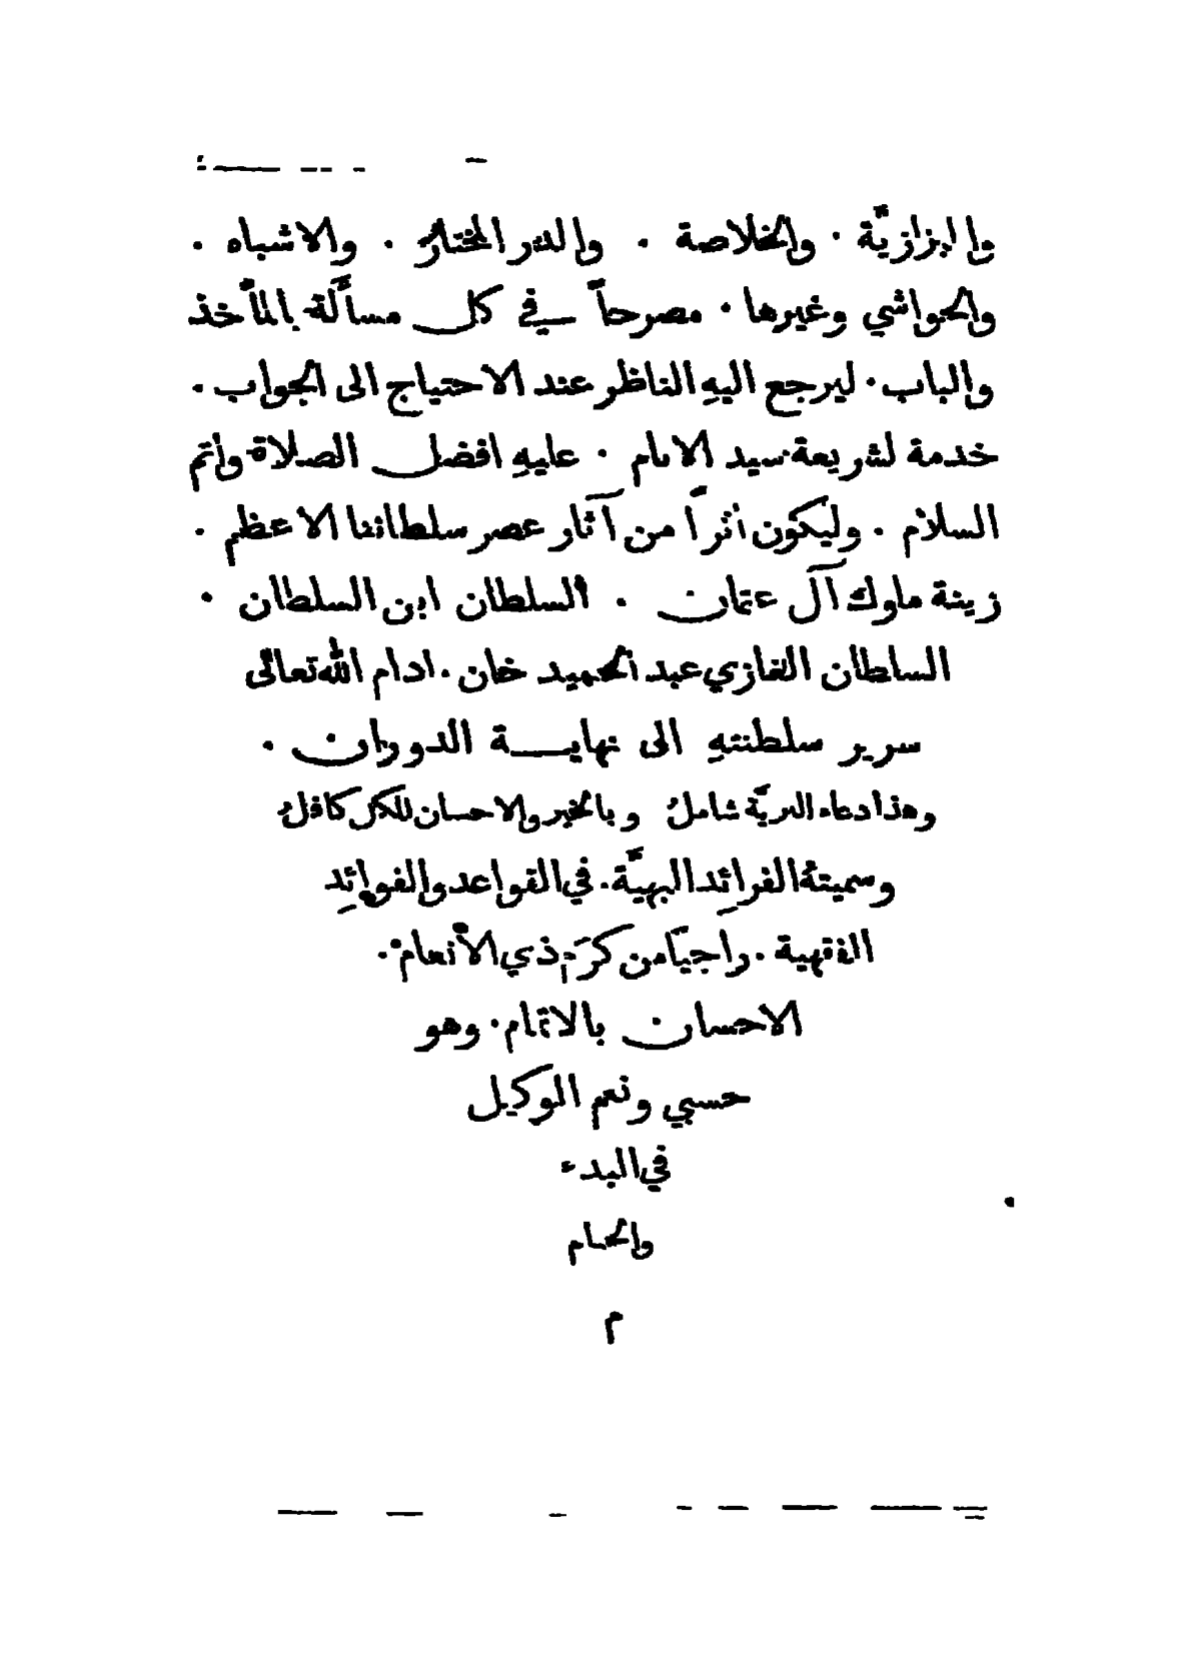 والبزازيَّة . والخلاصة . والدر المختار . والاشباه .
والحواشي وغيرها . مصرحاً في كل مسألة بالمأخذ
والباب . ليرجع اليهِ الناظر عند الاحتياج الى الجواب .
خدمة لشريعة سيد الانام . عليهِ افضل الصلاة واتم
السلام . وليكون أثراً من آثار عصر سلطاننا الاعظم .
زينة ملوك آل عثمان . السلطان ابن السلطان .
السلطان الغازي عبد الحميد خان . ادام الله تعالى
سرير سلطنتهِ الى نهاية الدوران .
وهذا دعاء للبريَّة شاملُ وبالخير والاحسان للكل كافلُ
وسميتهُ الفرائد البهيَّة . في القواعد والفوائِد
الفقهية . راجياً من كرَم ذي الأنعام .
الاحسان بالاتمام . وهو
حسبي ونعم الوكيل
في البدء
والختام
م